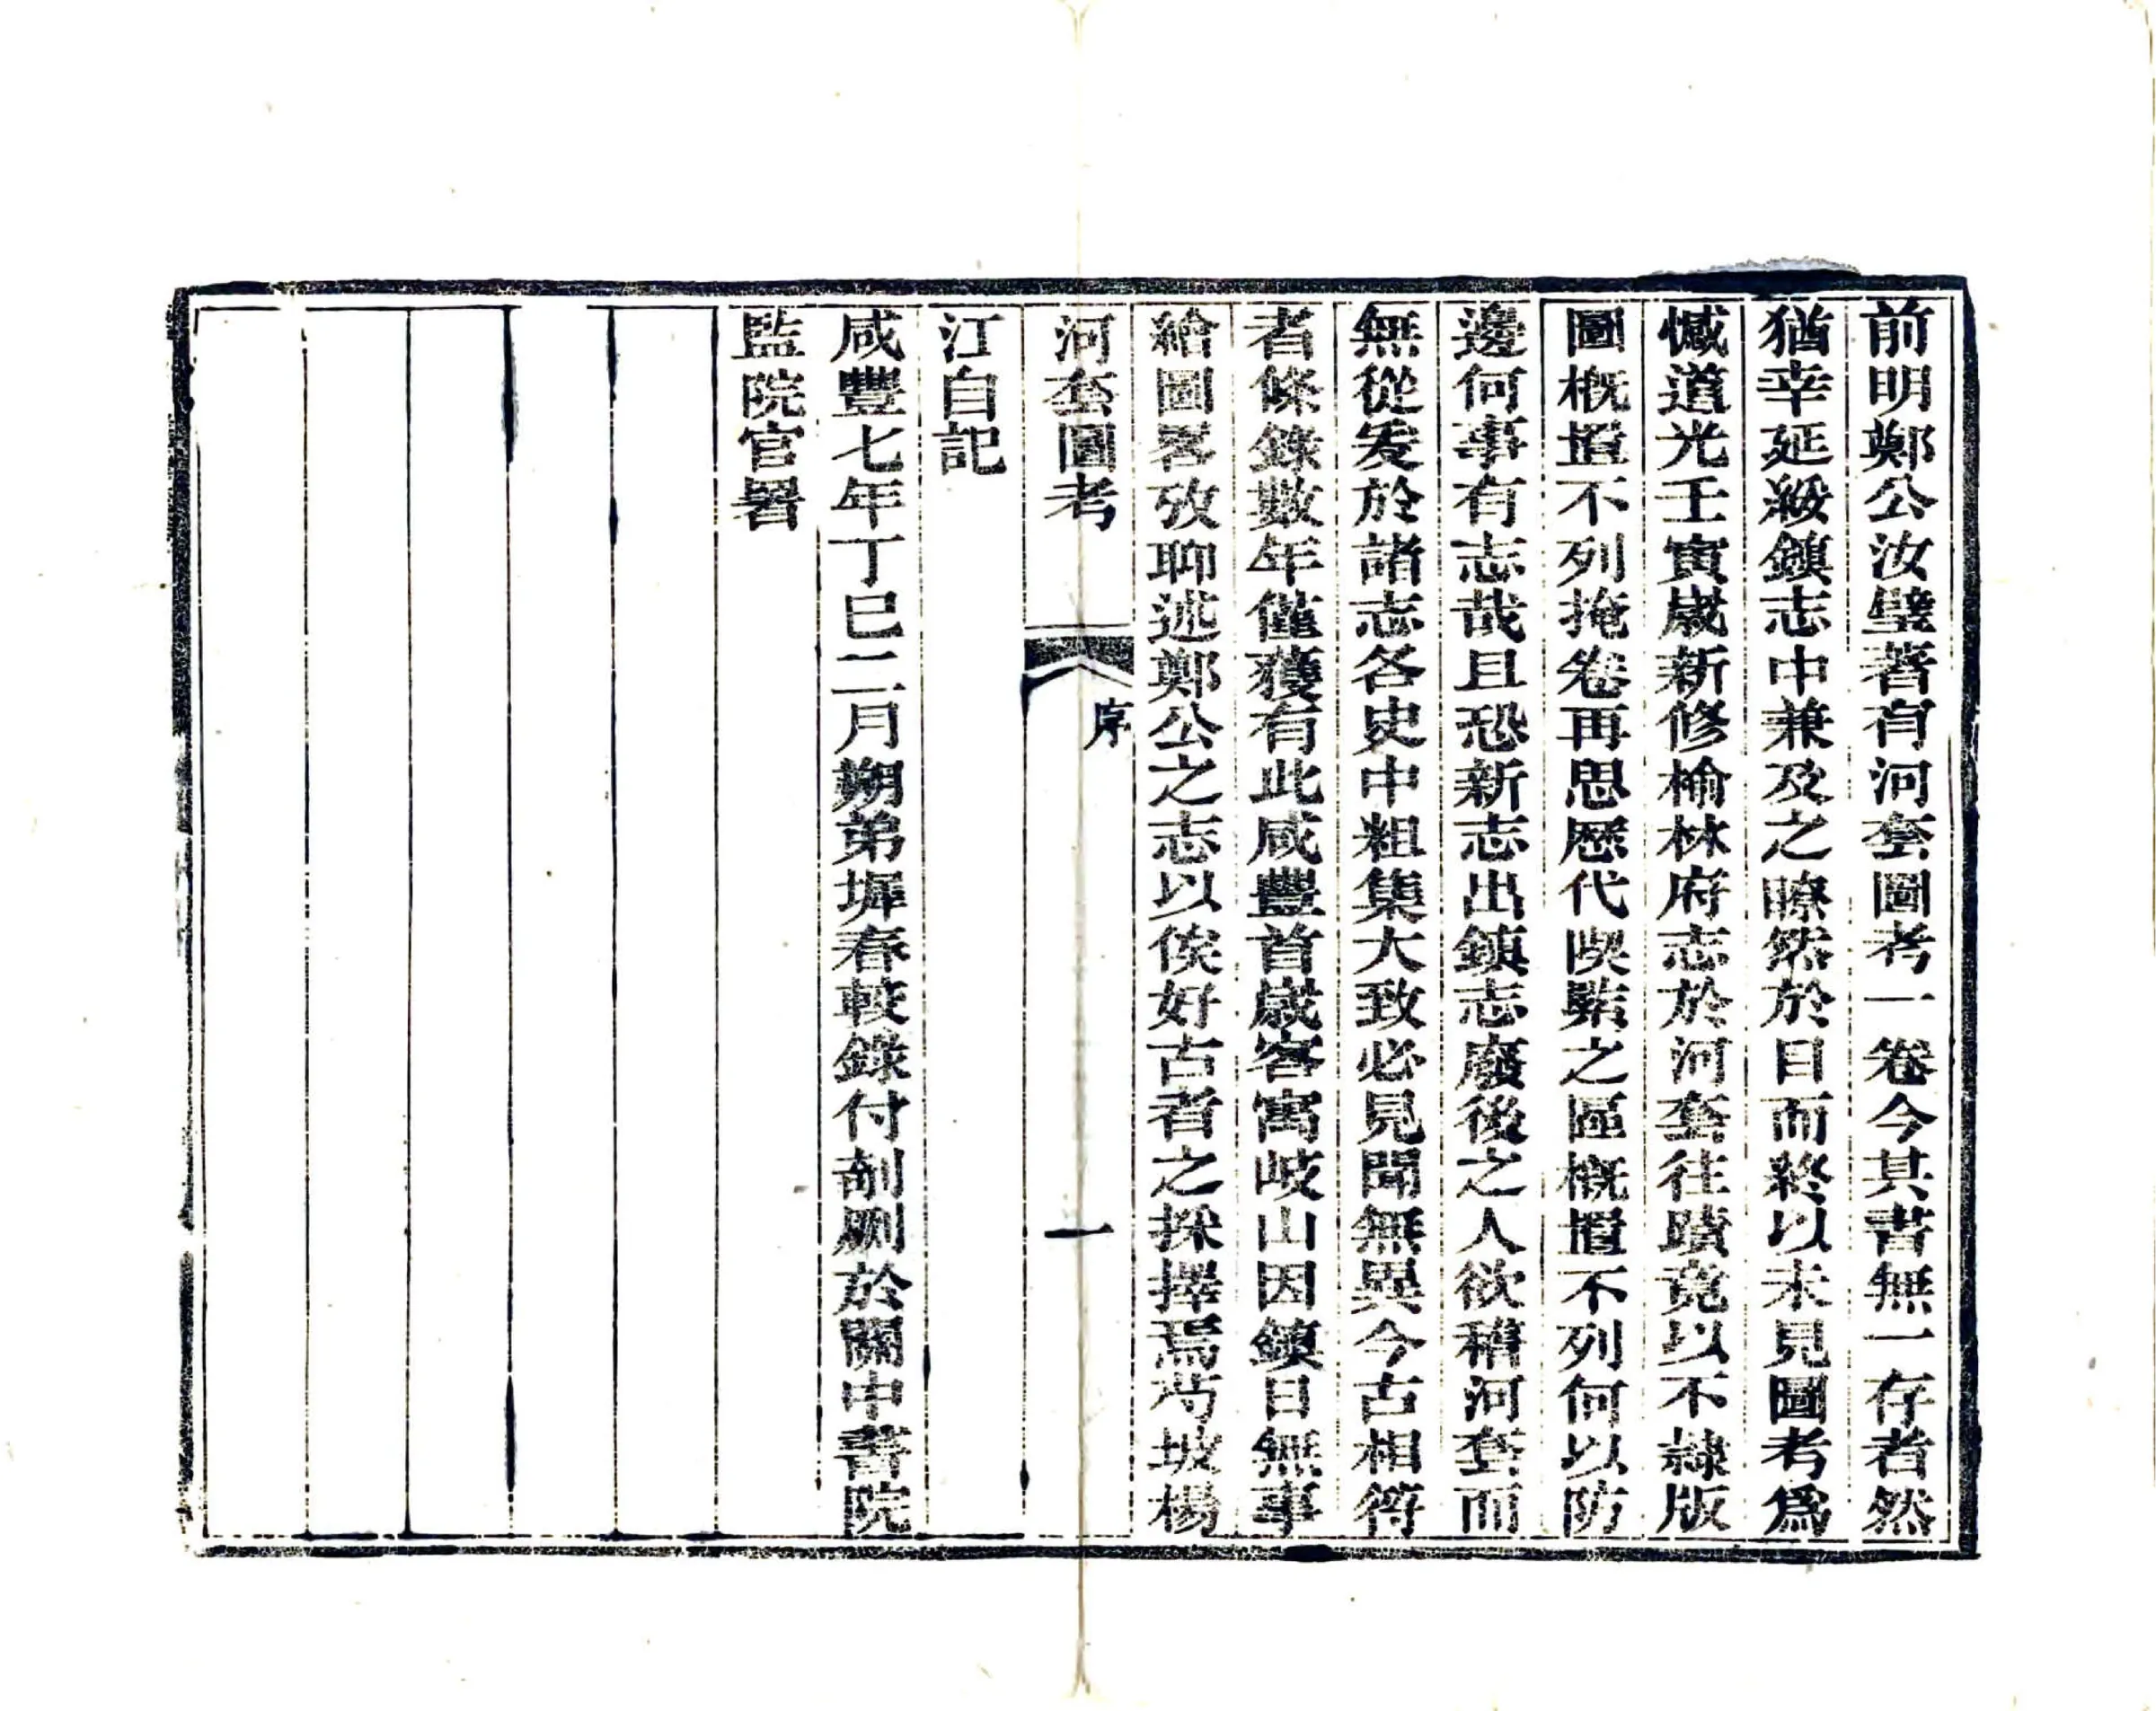 前明鄭公汝璧著有河套圖考一卷今其書無一存者然
猶幸延綏鎮志中兼及之瞭然於目而終以未見圖考爲
憾道光壬寅歲新修榆林府志於河套往蹟竟以不隷版
圖概置不列掩卷再思歷代喫緊之區概置不列何以防
邊何事有志哉且恐新志出鎮志廢後之人欲稽河套而
無從爰於諸志各史中粗集大致必見聞無異今古相符
者條錄數年僅獲有此咸豐首歲客寓岐山因鎮日無事
繪圖畧攷聊述鄭公之志以俟好古者之採擇焉芍坡楊
河套圖考
序
一
江自記
咸豐七年丁巳二月朔弟墀春較錄付剞劂於關中書院
監院官署